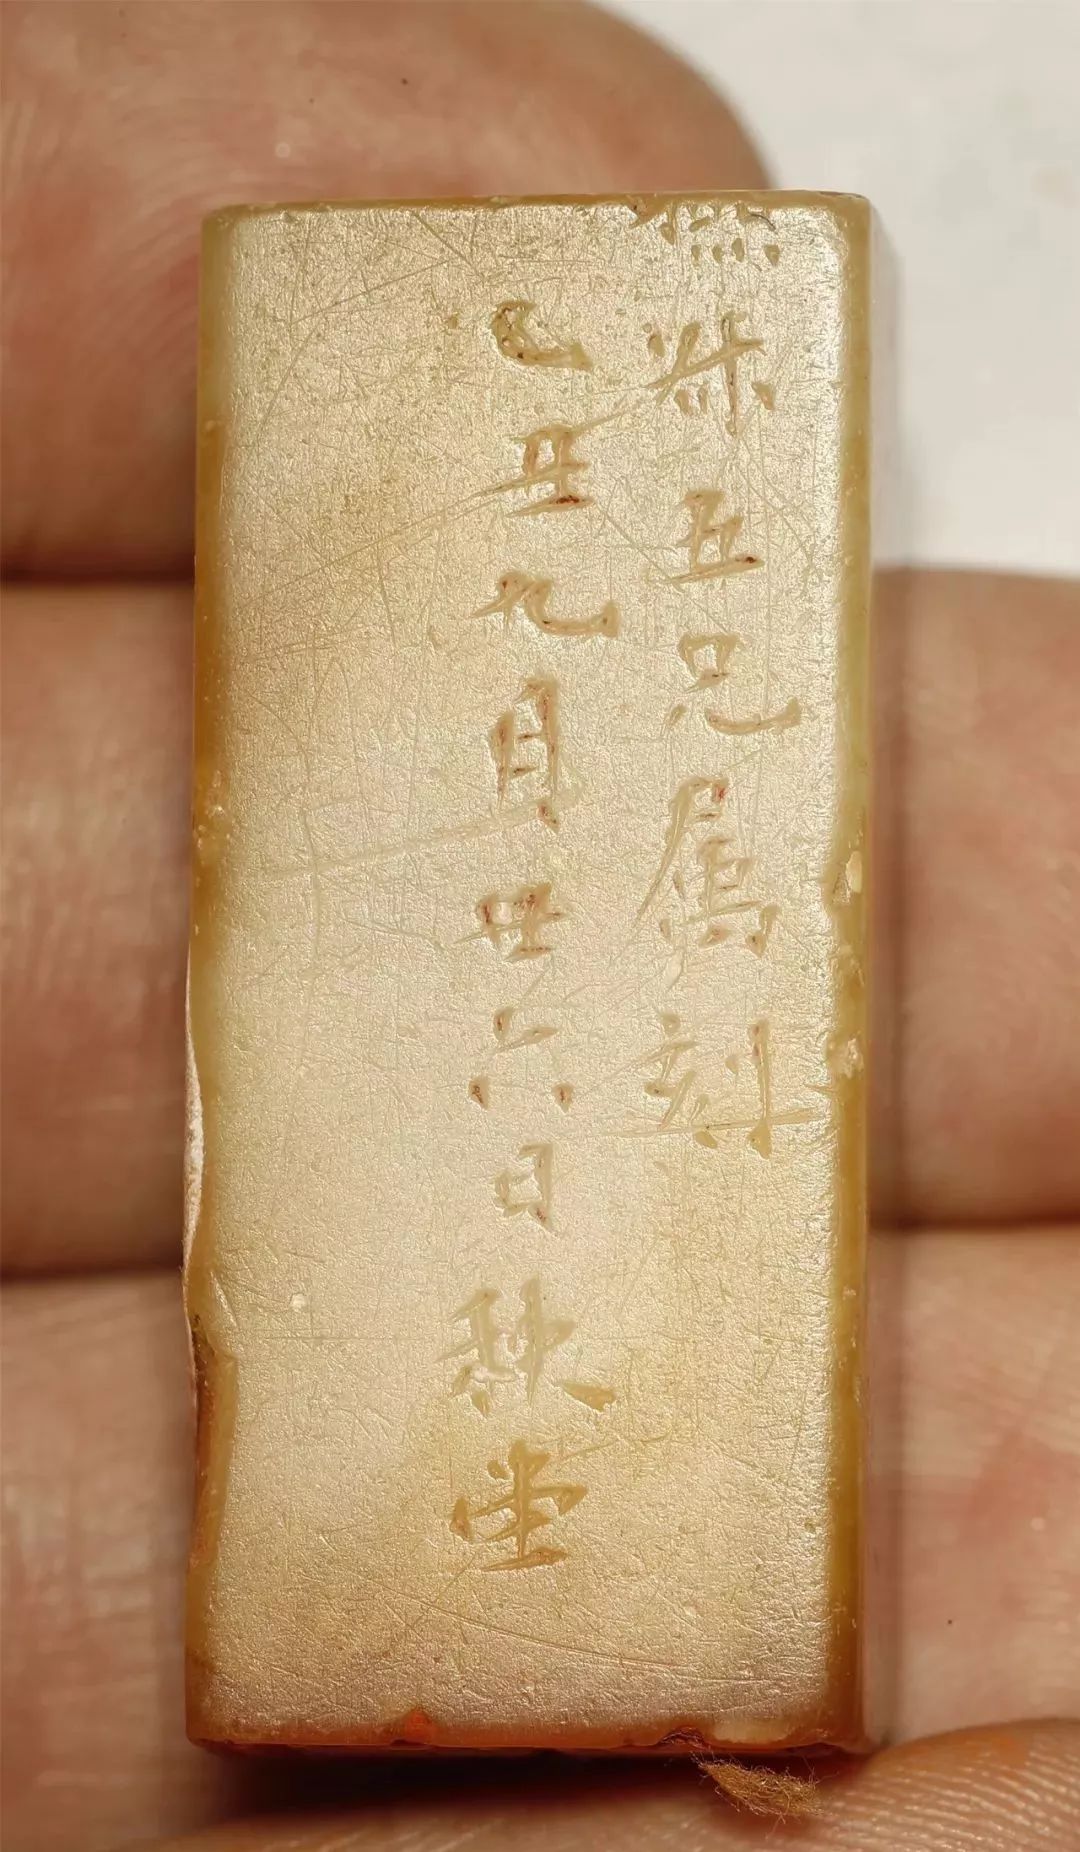 五兄属刻
乙丑九月廿六日秋堂